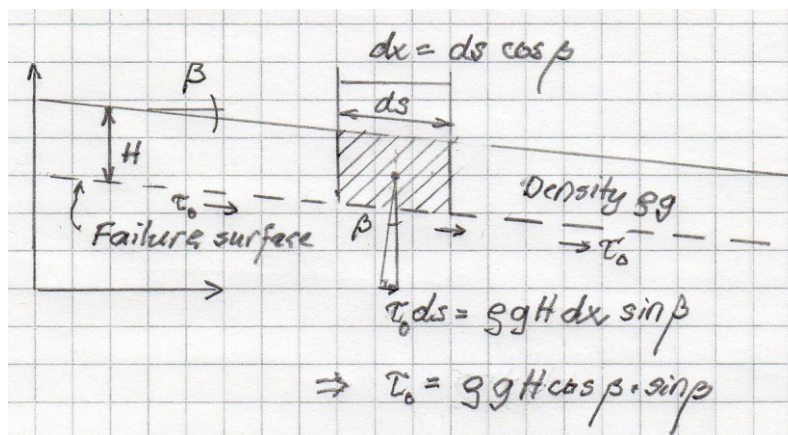 dx = ds cos β
β
ds
H
Density ϱg
τ₀
β
Failure surface
τ₀
τ₀ ds = ϱgH dx sin β
⇒ τ₀ = ϱgH cos β · sin β